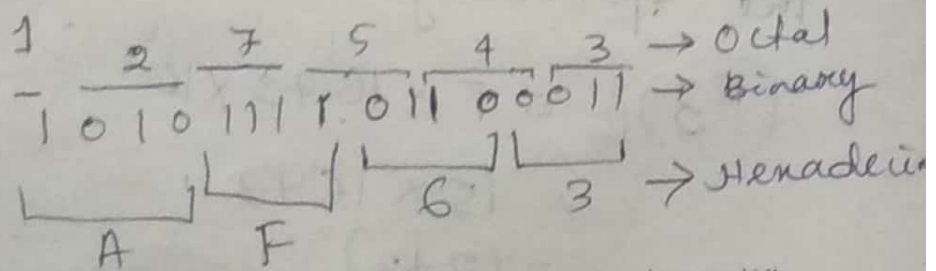 1 2 7 5 4 3 → Octal
1 010 111 1 011 00 011 → Binaroy
A F 6 3 → Hexadeci